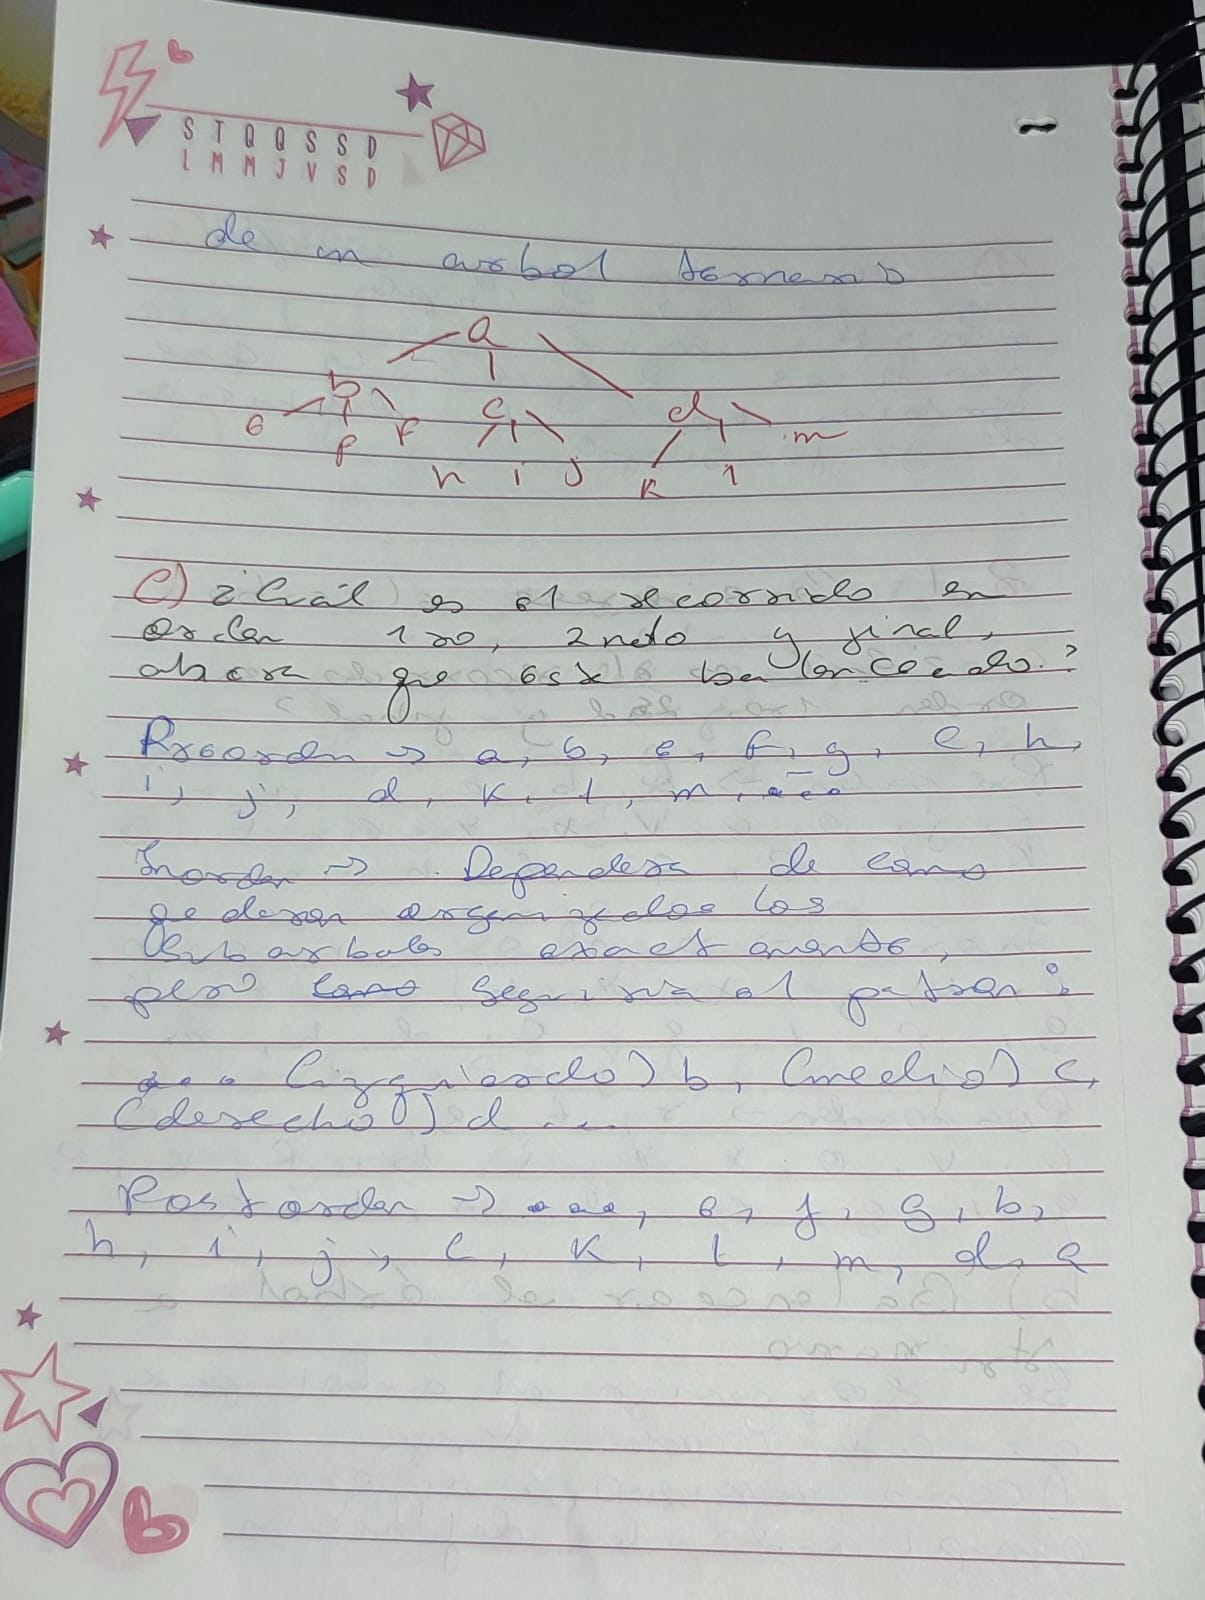 S T Q Q S S D
L M M J V S D
de un arbol ternario
a
b c d
e f f m
h i j k l
C) ¿Cuál es el recorrido en
orden 1ro, 2ndo y final,
ahora que está balanceado?
Preorden → a, b, e, f, g, c, h,
i, j, d, k, l, m, ...
Inorden → Dependera de como
quedaran organizados los
Subarboles exactamente,
pero como seguiria el patron:
... (izquierdo) b, (medio) c,
(derecho) d ...
Postorden → ..., e, f, g, b,
h, i, j, c, k, l, m, d, a